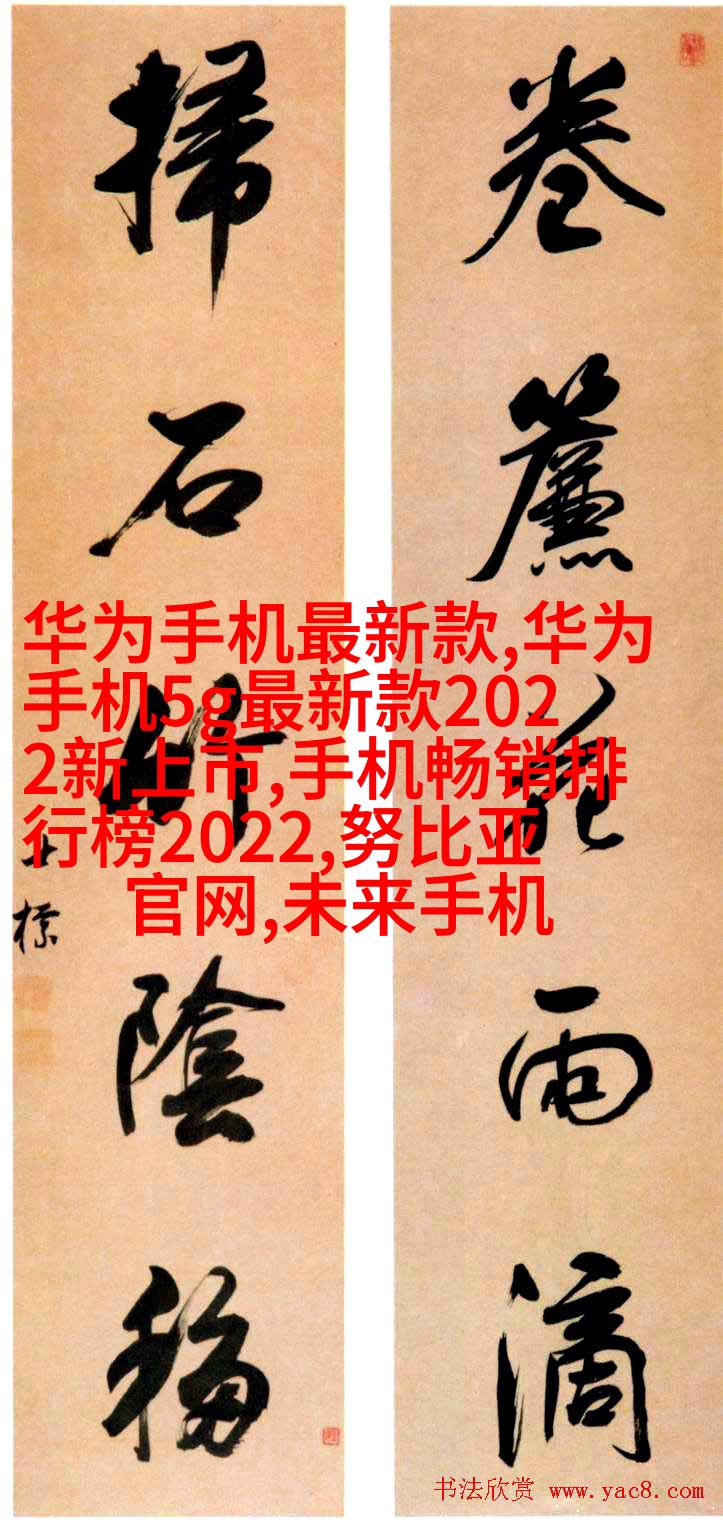 卷簾花雨滴
掃石竹陰移
士標
华为手机最新款,华为
手机5g最新款202
2新上市,手机畅销排
行榜2022,努比亚
官网,未来手机
书法欣赏 www.yac8.com